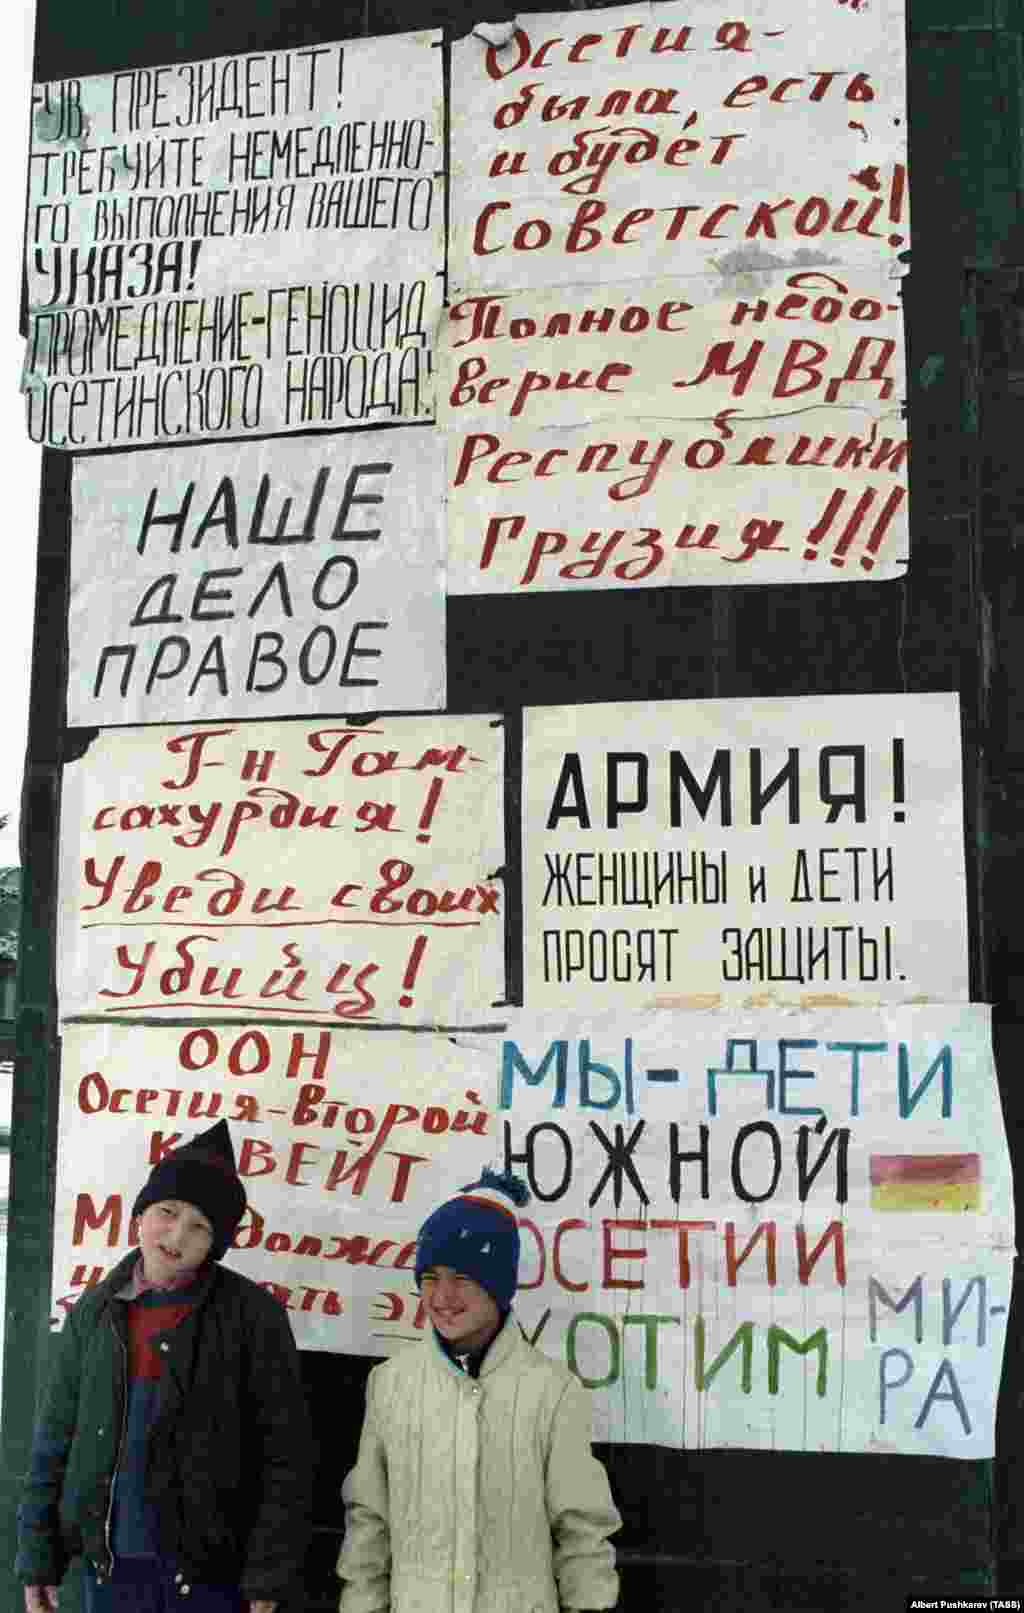 УВ. ПРЕЗИДЕНТ!
ТРЕБУЙТЕ НЕМЕДЛЕННО-
ГО ВЫПОЛНЕНИЯ ВАШЕГО
УКАЗА!
ПРОМЕДЛЕНИЕ-ГЕНОЦИД
ОСЕТИНСКОГО НАРОДА!
Осетия-
была, есть
и будет
Советской!
Полное недо-
верие МВД
Республики
Грузия!!!
НАШЕ
ДЕЛО
ПРАВОЕ
Г-н Гам-
сахурдия!
Уведи своих
Убийц!
АРМИЯ!
ЖЕНЩИНЫ и ДЕТИ
ПРОСЯТ ЗАЩИТЫ.
ООН
Осетия-второй
КУВЕЙТ
должн
ЭТ
МЫ-ДЕТИ
ЮЖНОЙ
ОСЕТИИ
ХОТИМ
МИ-
РА
Albert Pushkarev (TASS)